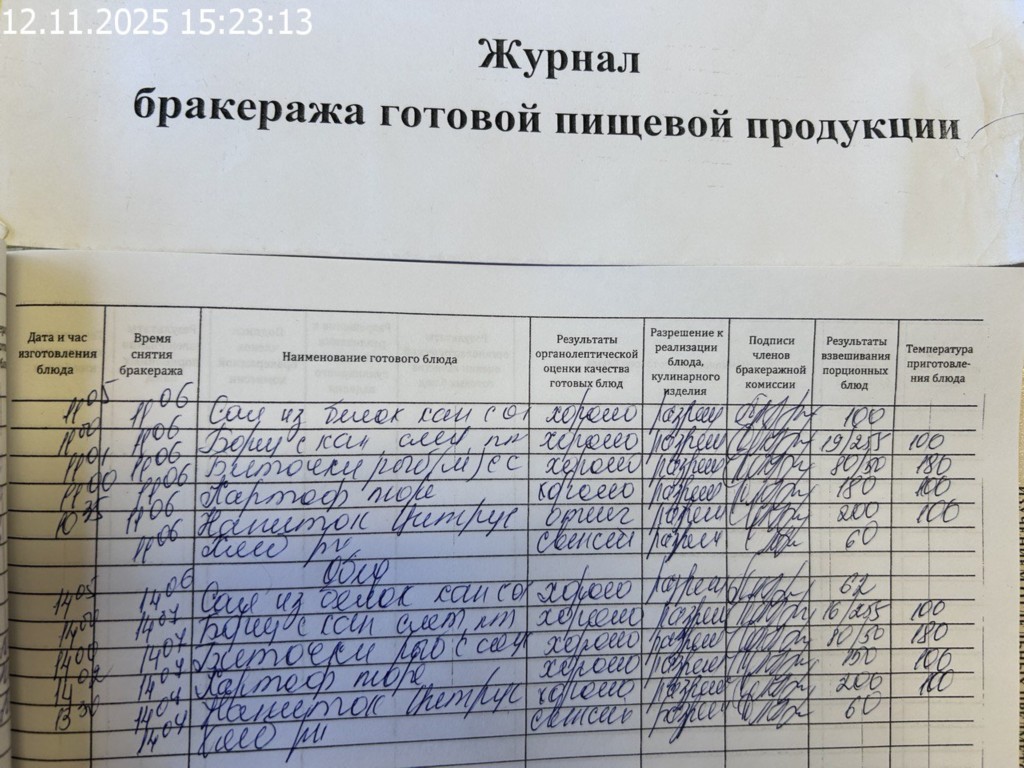 12.11.2025 15:23:13
Журнал
бракеража готовой пищевой продукции
Дата и час изготовления блюда
Время снятия бракеража
Наименование готового блюда
Результаты органолептической оценки качества готовых блюд
Разрешение к реализации блюда, кулинарного изделия
Подписи членов бракеражной комиссии
Результаты взвешивания порционных блюд
Температура приготовле- ния блюда
11 05 11 06 Сал из белок кап со хорошо разреш 100
11 00 11 06 Борщ с кап хорошо разреш 19/255 100
11 01 11 06 Биточки рыб(м)сс хорошо разреш 80/50 180
11 00 11 06 Картоф пюре хорошо разреш 180 100
10 35 11 06 Напиток цитрус разреш 200 100
11 06 Хлеб рж разреш 60
Обед
14 05 14 06 Сал из белок кап со хорошо разреш 62
14 00 14 07 Борщ с кап хорошо разреш 16/255 100
14 00 14 07 Биточки рыб с соу хорошо разреш 80/50 180
14 02 14 07 Картоф пюре хорошо разреш 150 100
13 30 14 07 Напиток цитрус хорошо разреш 200 100
14 07 Хлеб рж разреш 60